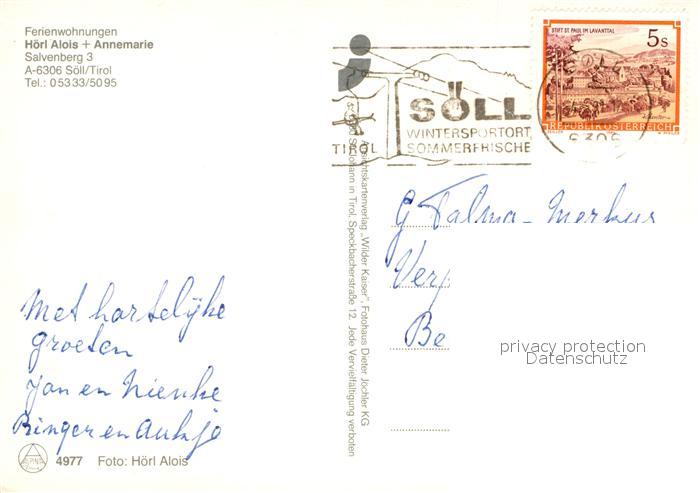 Ferienwohnungen
Hörl Alois + Annemarie
Salvenberg 3
A-6306 Söll/Tirol
Tel.: 05333/5095
SÖLL
WINTERSPORTORT
SOMMERFRISCHE
TIROL
STIFT ST. PAUL IM LAVANTTAL
5s
REPUBLIK ÖSTERREICH
6306
Ansichtskartenverlag „Wilder Kaiser", Fotohaus Dieter Jöchler KG
St. Johann in Tirol, Speckbacherstraße 12. Jede Vervielfältigung verboten
G Talma-Merkus
Ver
Be
privacy protection
Datenschutz
Met hartelijke
groeten
Jan en Nienke
Ringer en Aukje
4977 Foto: Hörl Alois